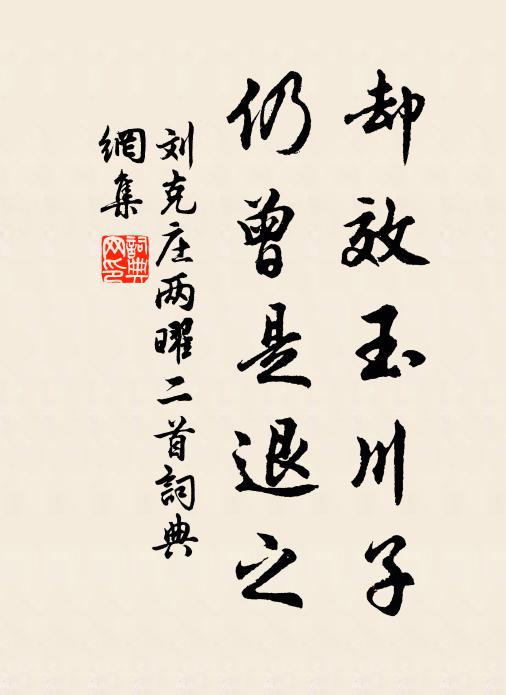 却效玉川子
仍曾是退之
刘克庄两曜二首詞典
網集
詞典
网印